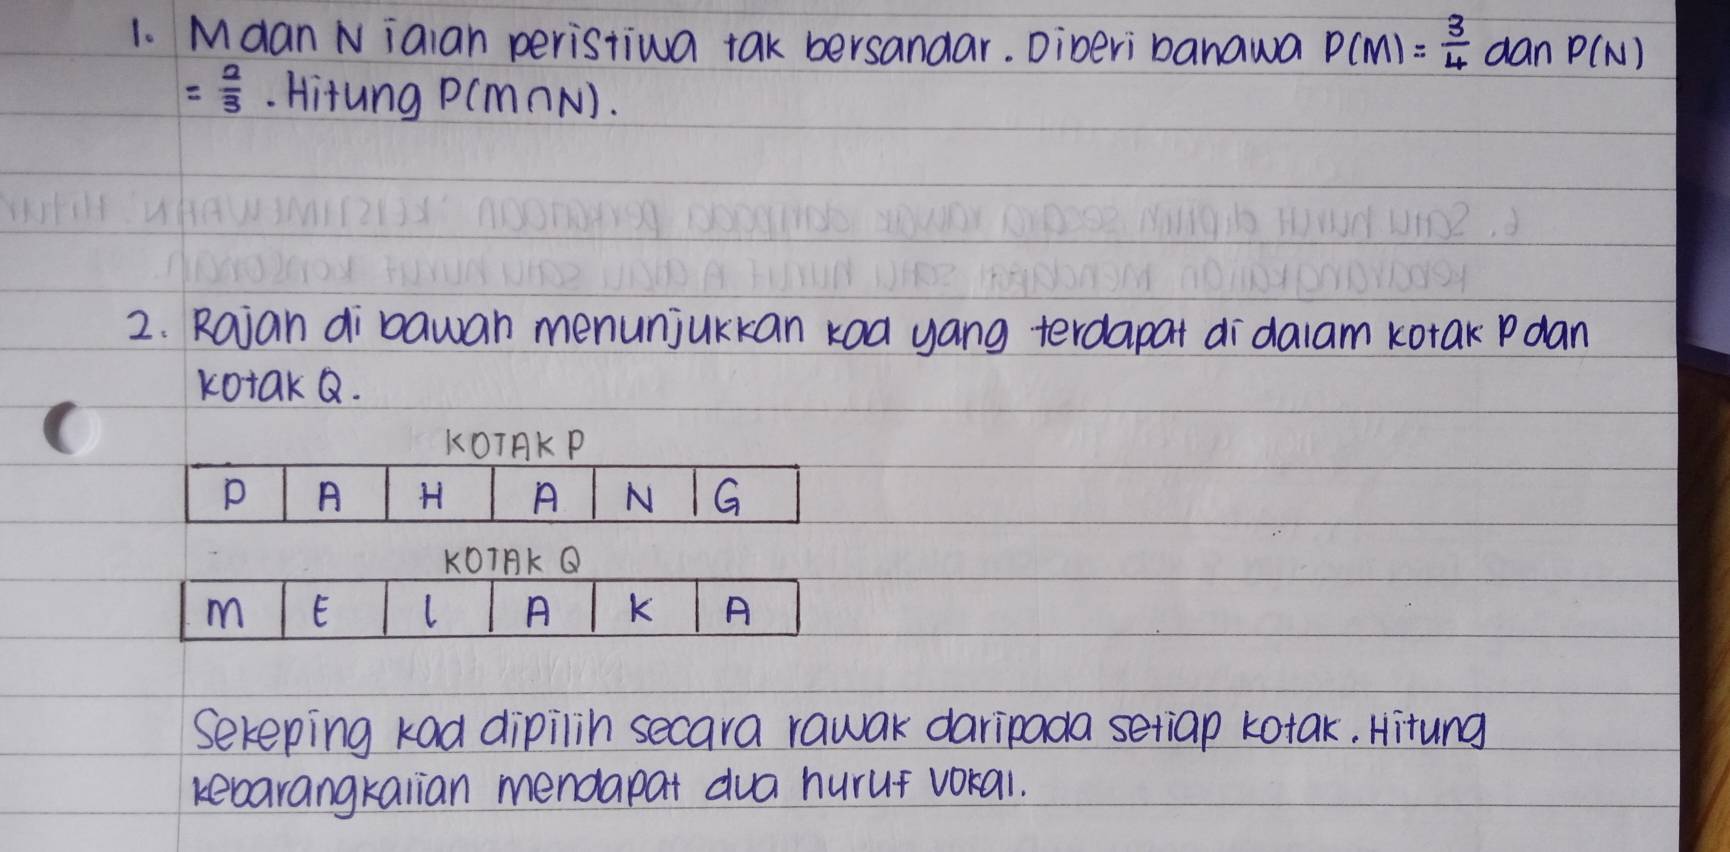 1. M dan N ialah peristiwa tak bersandar. Diberi bahawa P(M) = 3/4 dan P(N)
= 2/3. Hitung P(M∩N).
2. Rajah di bawah menunjukkan kad yang terdapat di dalam kotak P dan
kotak Q.
KOTAK P
P A H A N G
KOTAK Q
M E L A K A
Sekeping kad dipilih secara rawak daripada setiap kotak. Hitung
kebarangkalian mendapat dua huruf vokal.